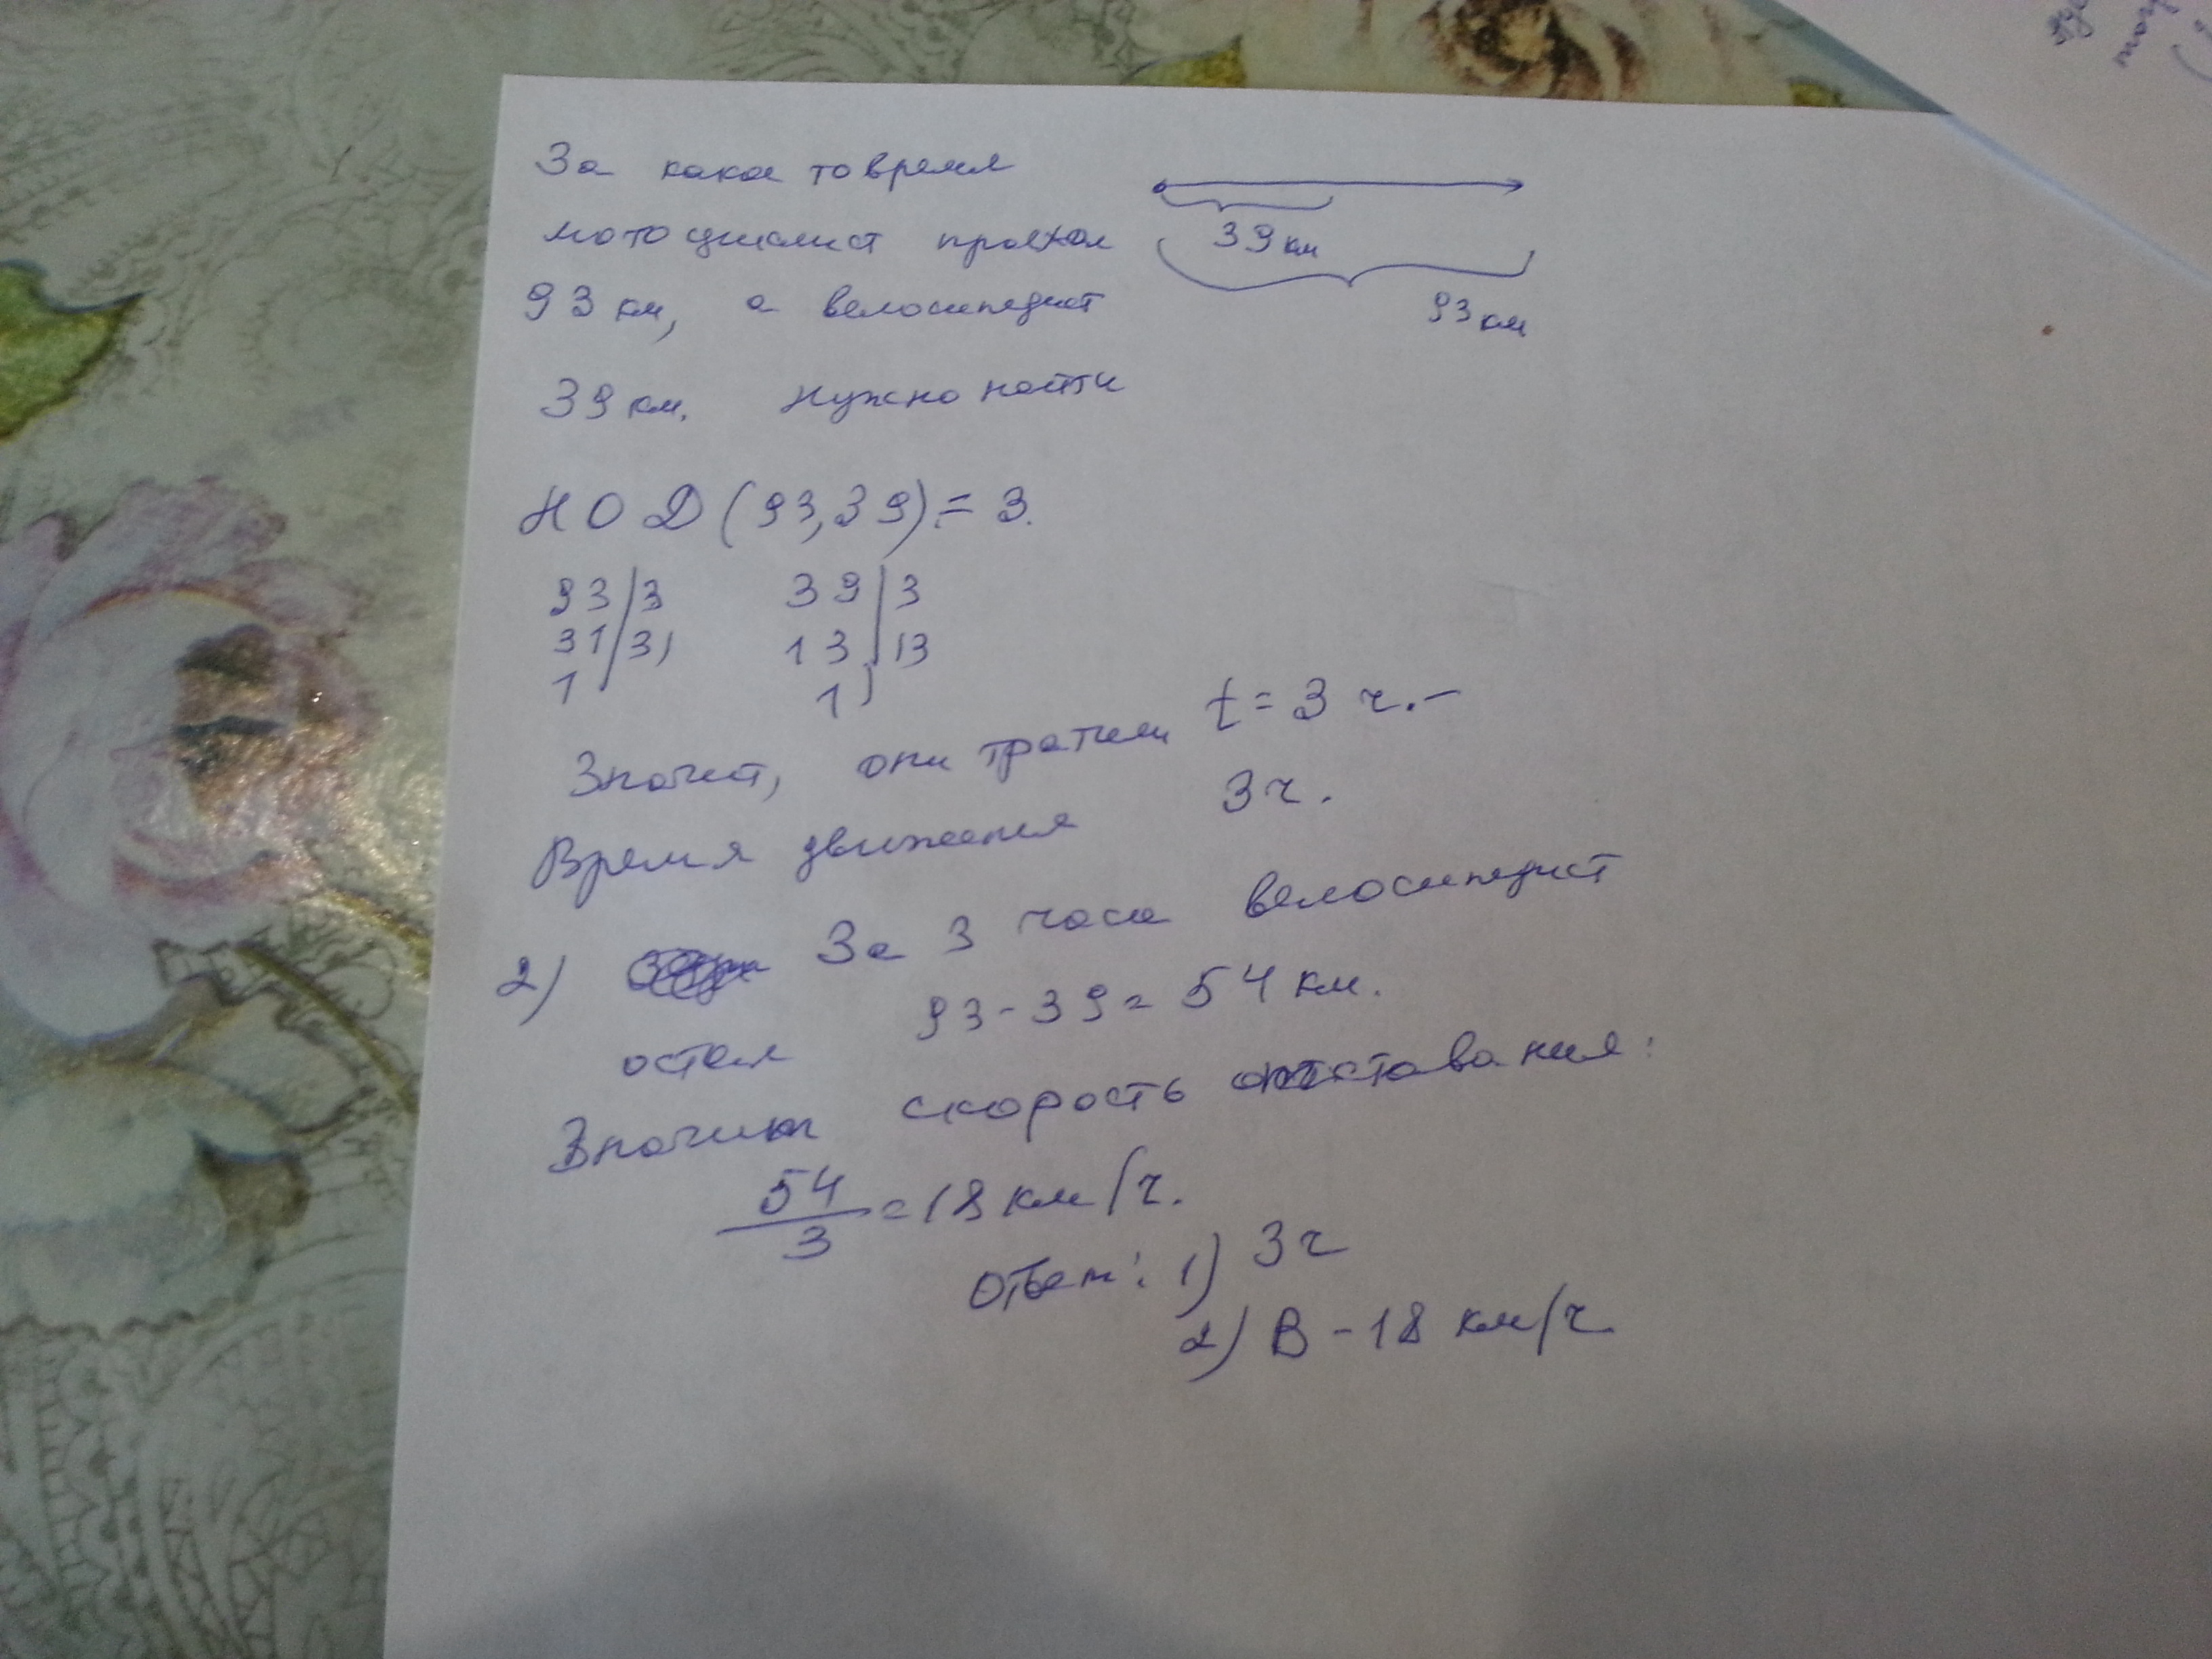 За какое то время
мотоциклист проехал
93 км, а велосипедист
39 км. Нужно найти
39 км
93 км
НОД (93,39) = 3.
93 3 39 3
31 31 13 13
1 1
Значит, они тратили t = 3 ч. -
Время движения 3 ч.
2) За 3 часа велосипедист
отстал 93 - 39 = 54 км.
Значит скорость отставания:
54/3 = 18 км/ч.
Ответ: 1) 3 ч
2) В - 18 км/ч